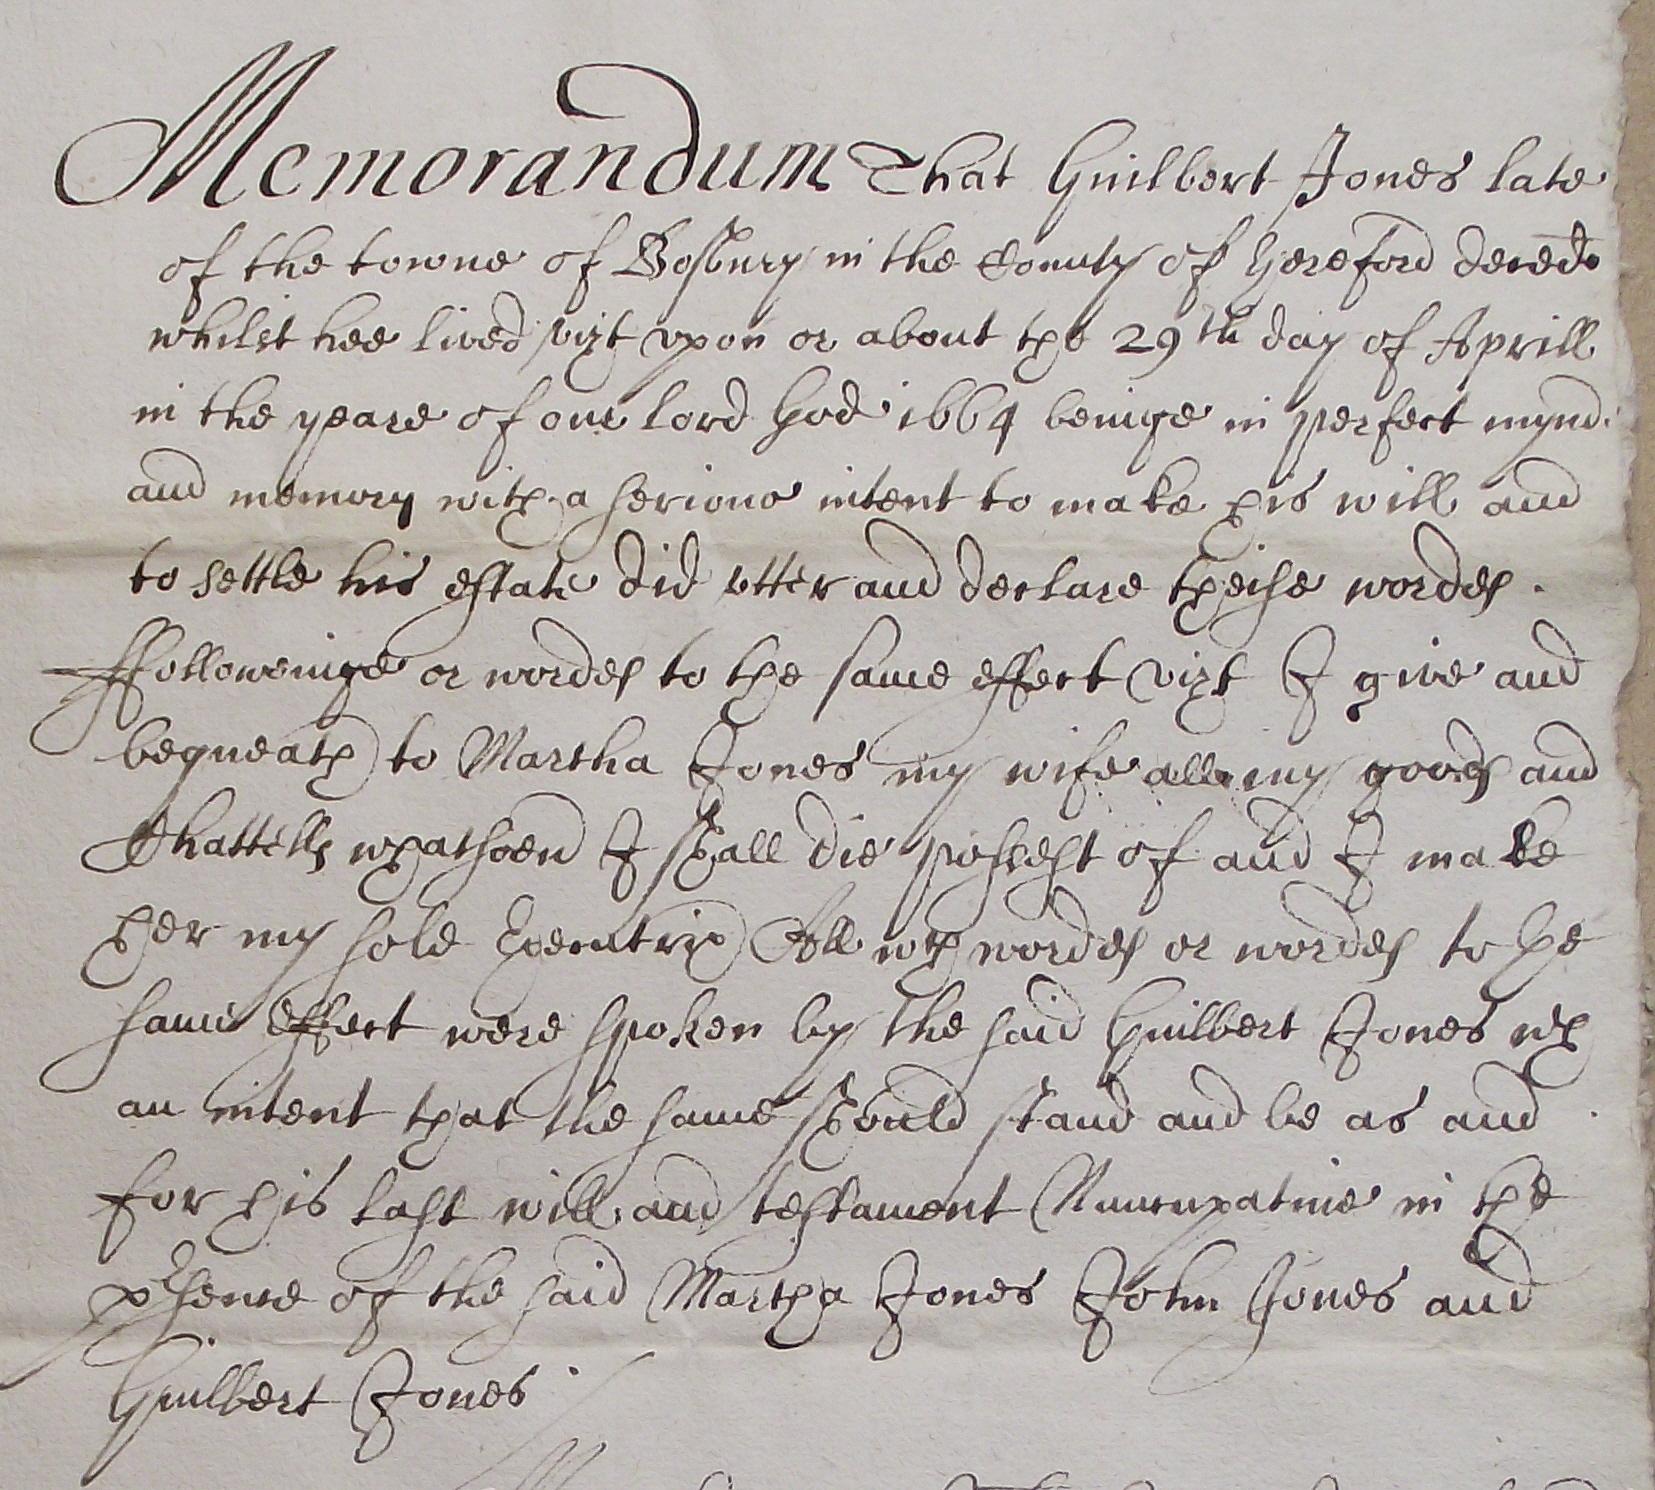 Memorandum That Guilbert Jones late
of the towne of Bosbury in the County of Hereford deced
whilst hee lived vizt vpon or about the 29th day of Aprill
in the yeare of our lord God 1664 beinge in perfect mynd
and memory with a serious intent to make his will and
to settle his estate did vtter and declare theise wordes
ffolloweinge or wordes to the same effect vizt I give and
bequeath to Martha Jones my wife all my goods and
Chattells whatsoeu I shall die possest of and I make
her my sole Executrix All wch wordes or wordes to the
same effect were spoken by the said Guilbert Jones wth
an intent that the same should stand and be as and
for his last will and testament Nuncupative in the
psence of the said Martha Jones John Jones and
Guilbert Jones